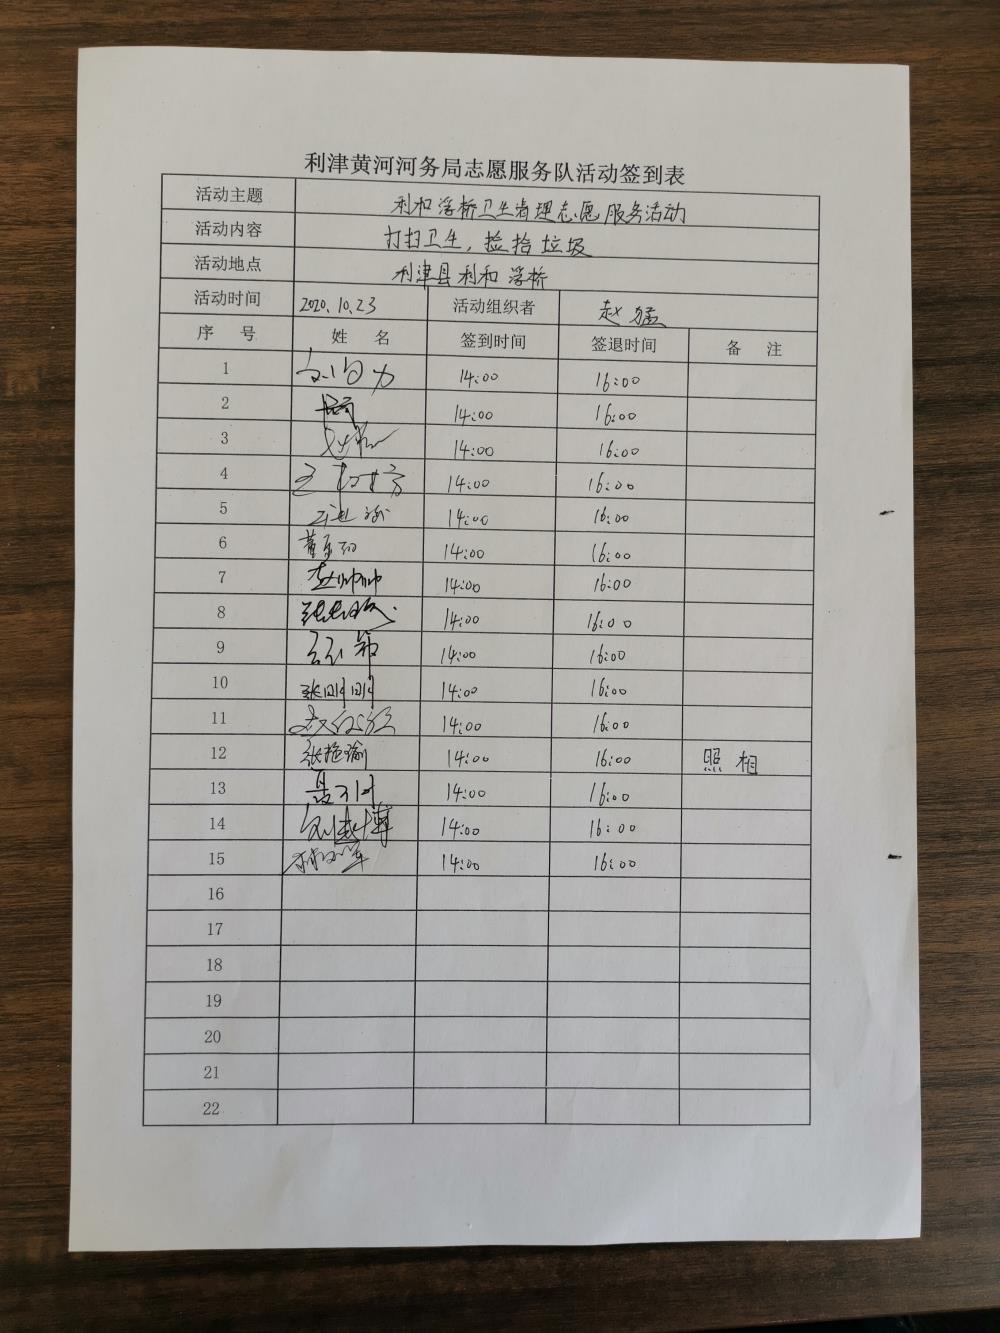 利津黄河河务局志愿服务队活动签到表
活动主题 利和浮桥卫生清理志愿服务活动
活动内容 打扫卫生，捡拾垃圾
活动地点 利津县利和浮桥
活动时间 2020.10.23 活动组织者 赵猛
序 号 姓 名 签到时间 签退时间 备 注
1 14:00 16:00
2 14:00 16:00
3 14:00 16:00
4 14:00 16:00
5 14:00 16:00
6 14:00 16:00
7 赵帅帅 14:00 16:00
8 14:00 16:00
9 14:00 16:00
10 张明明 14:00 16:00
11 14:00 16:00
12 14:00 16:00 照相
13 14:00 16:00
14 14:00 16:00
15 14:00 16:00
16
17
18
19
20
21
22